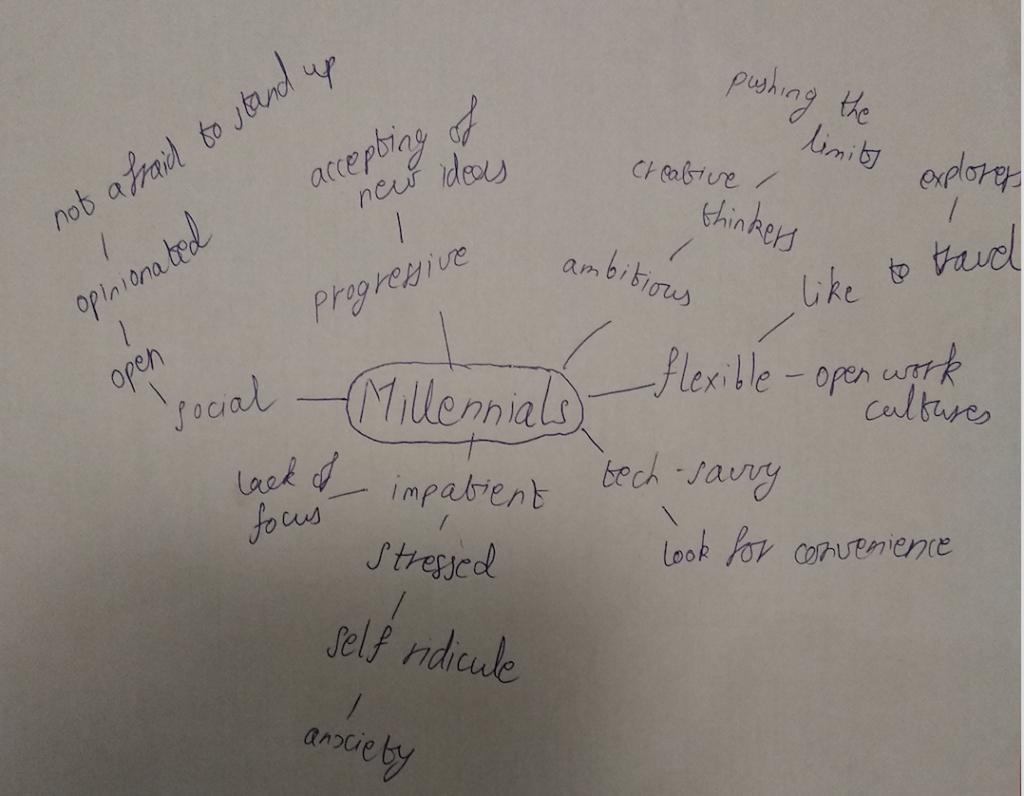 not afraid to stand up
opinionated
open
social
accepting of
new ideas
progressive
pushing the
limits
creative
thinkers
ambitious
explorers
like to travel
flexible - open work
cultures
Millennials
tech-savvy
look for convenience
lack of
focus
impatient
stressed
self ridicule
anxiety